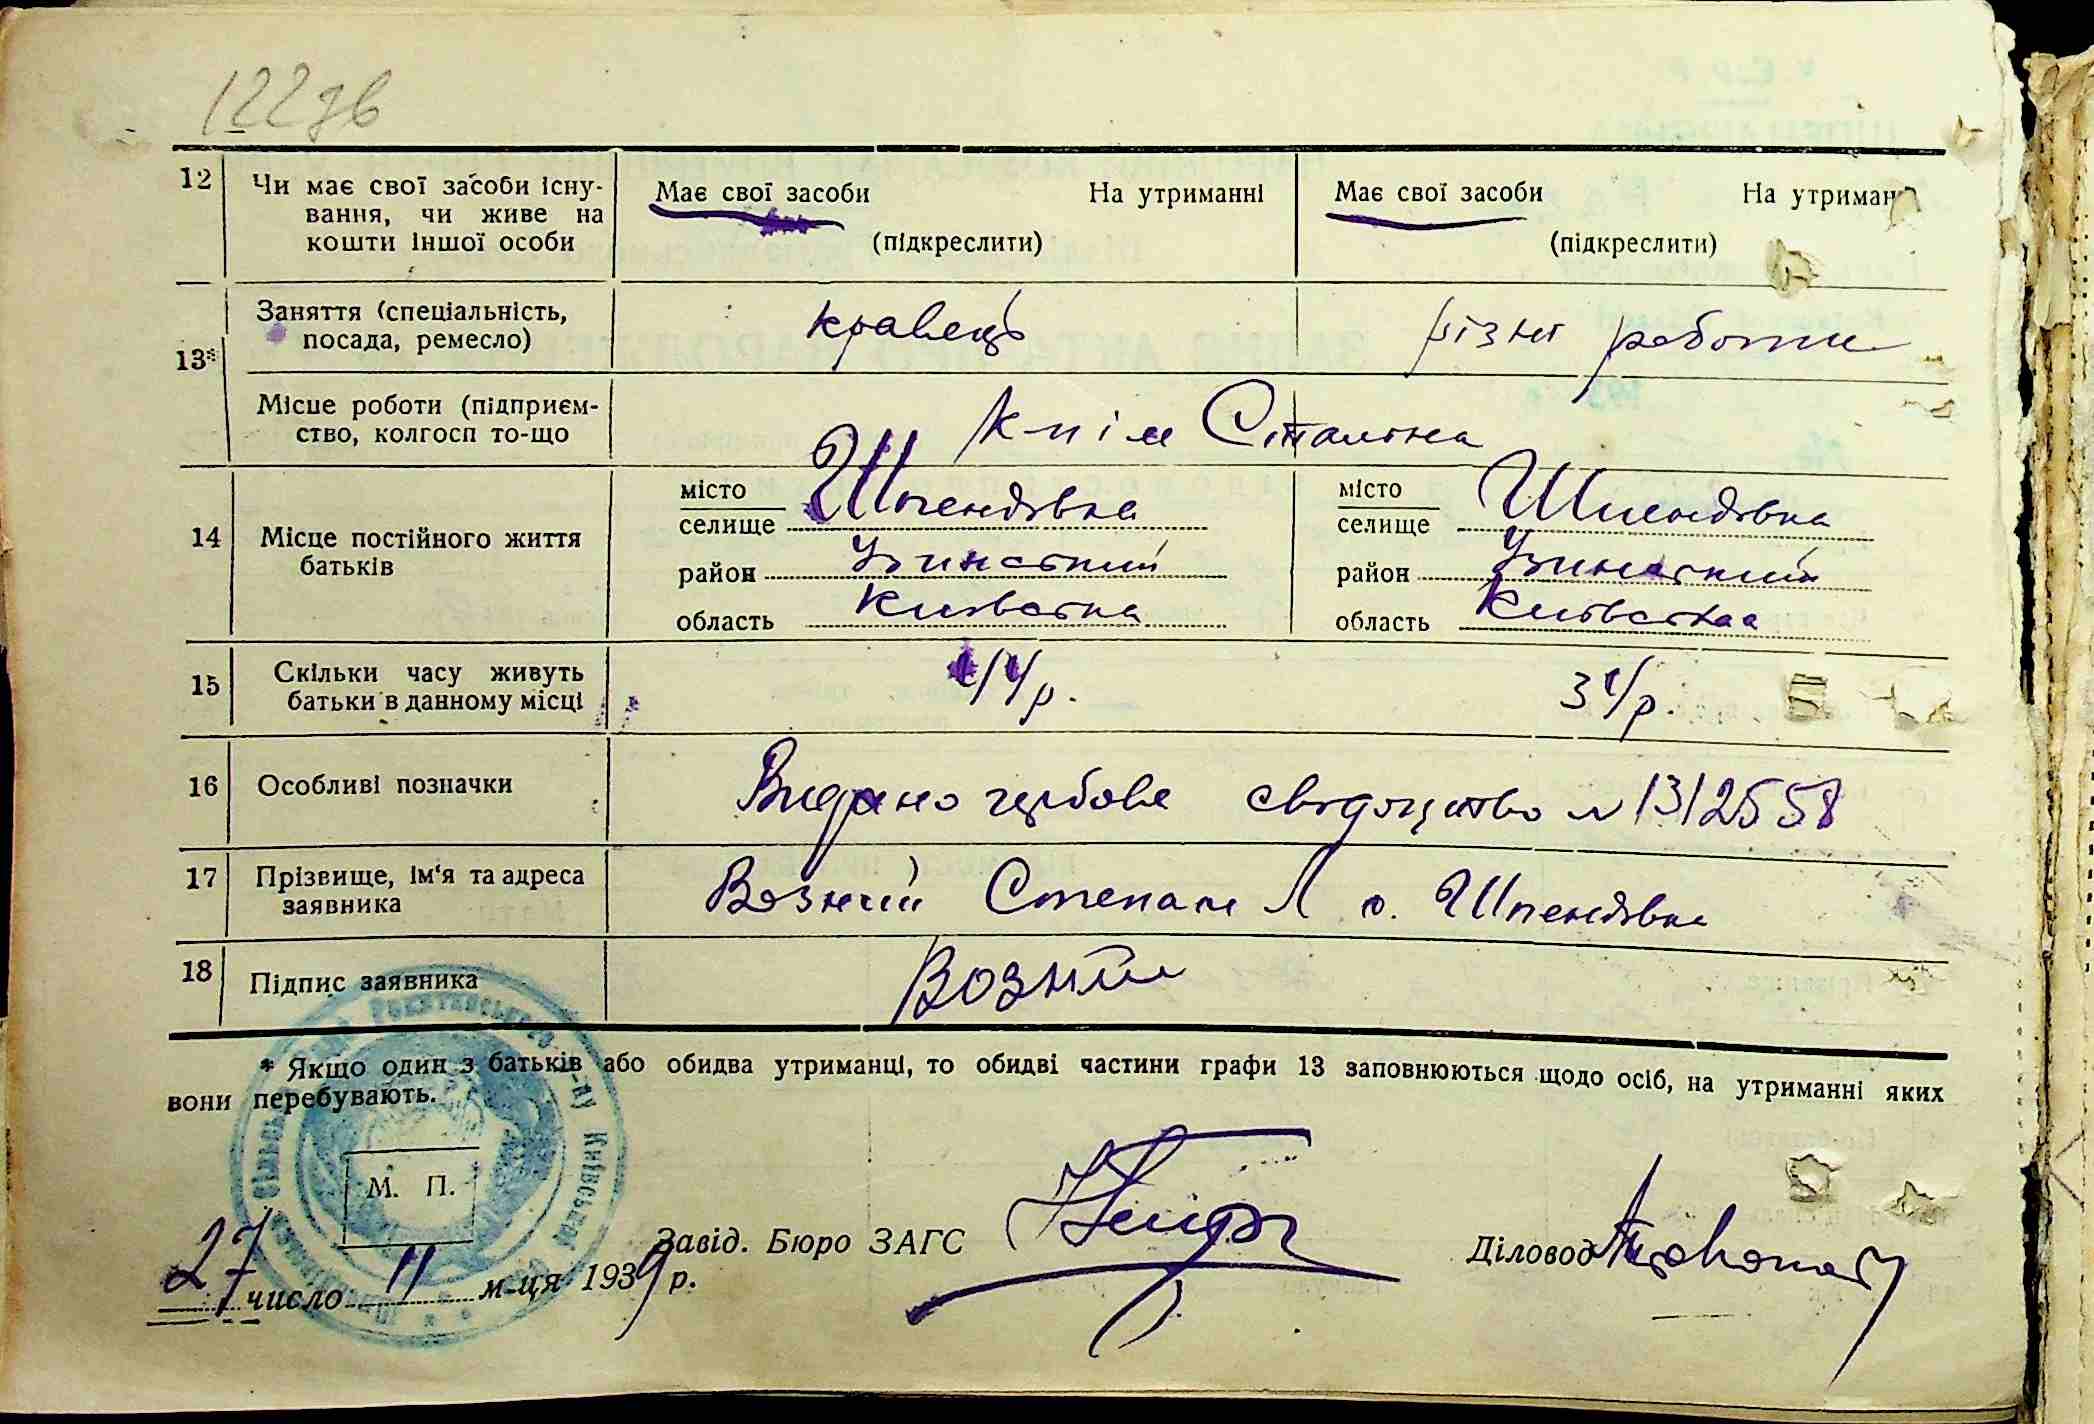 122зв
12 Чи має свої засоби існу- Має свої засоби На утриманні Має свої засоби На утриман
вання, чи живе на
кошти іншої особи (підкреслити) (підкреслити)
Заняття (спеціальність, кравець різні роботи
посада, ремесло)
13*
Місце роботи (підприєм- К-п ім Сталіна
ство, колгосп то-що
місто Шпендівка місто Шпендівка
селище селище
14 Місце постійного життя
батьків
район Узинський район Узинський
область Київська область Київська
15 Скільки часу живуть 44р. 34р.
батьки в данному місці
16 Особливі позначки Видано гербове свідоцтво № 1312558
17 Прізвище, ім'я та адреса Возний Степан Л с. Шпендівка
заявника
18 Підпис заявника Возний
* Якщо один з батьків або обидва утриманці, то обидві частини графи 13 заповнюються щодо осіб, на утриманні яких
вони перебувають.
М. П.
Завід. Бюро ЗАГС Діловод
27 число 11 м-ця 1939 р.